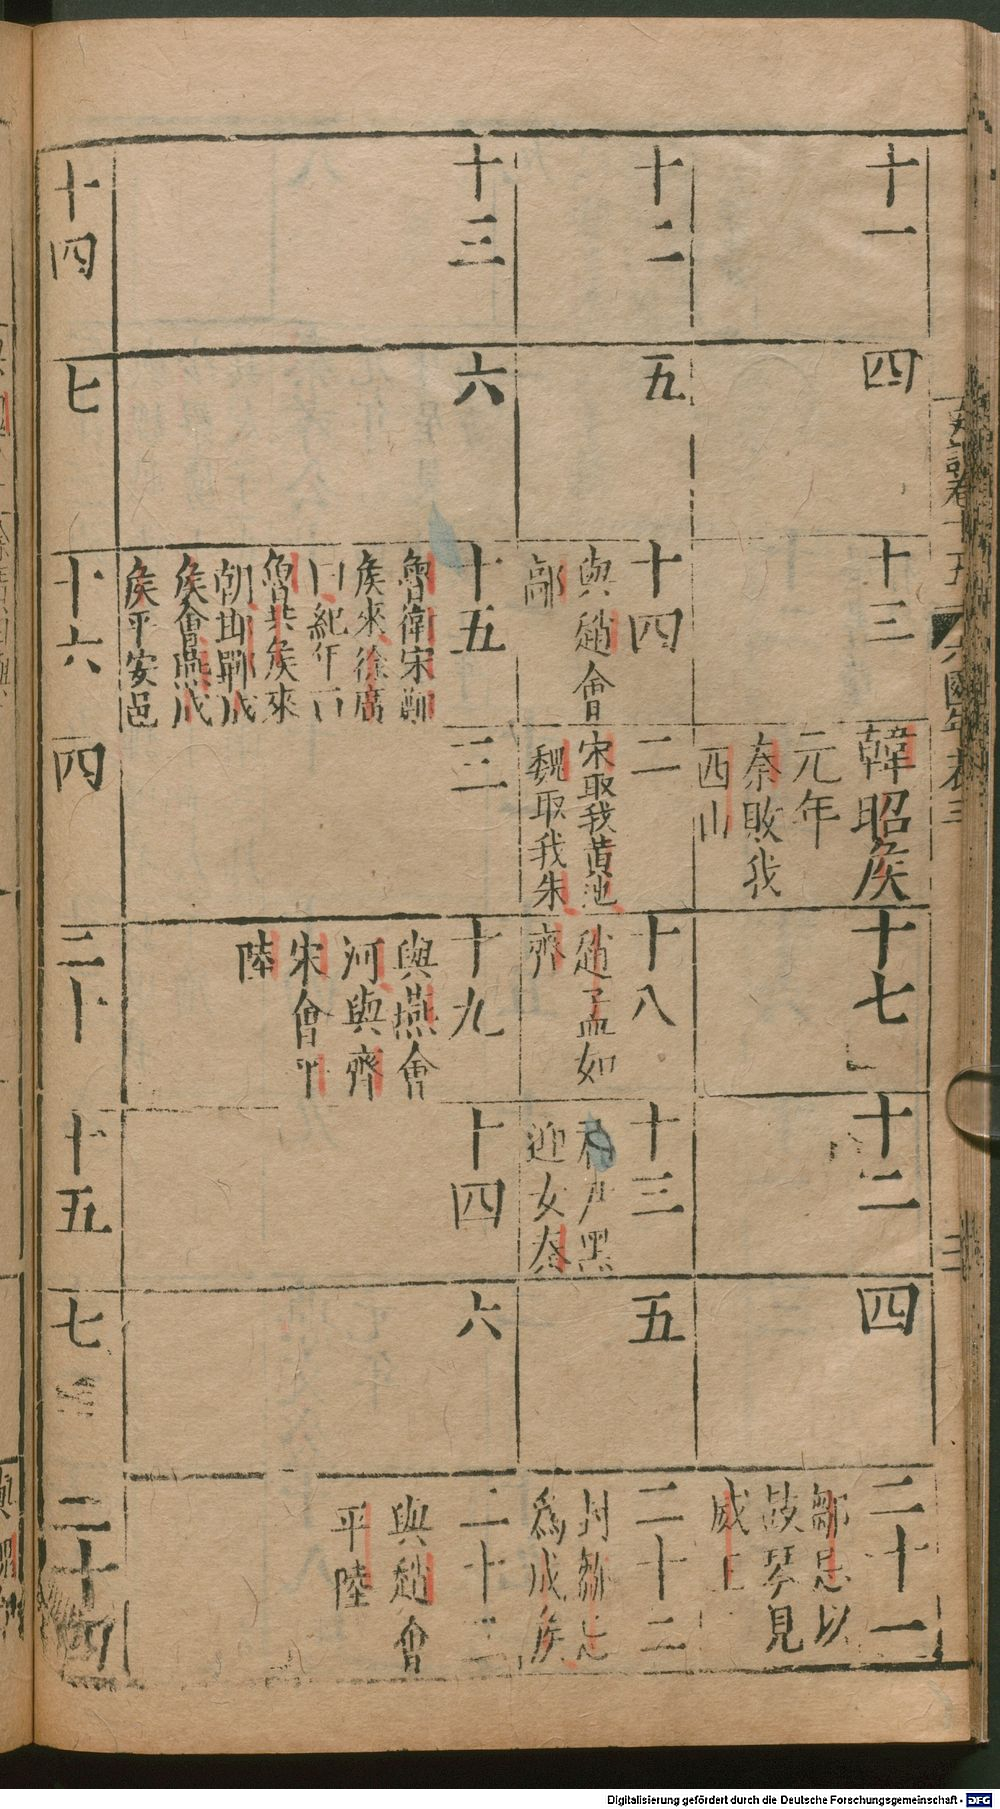 十一
四
十三
韓昭矦
元年
秦敗我
西山
十七
十二
四
二十一
鄒忌以
鼓琴見
威王
十二
五
十四
與趙會
鄗
二
宋取我黃池
魏取我朱
十八
趙孟如
齊
十三
迎女秦
五
二十二
封鄒忌
爲成矦
十三
六
十五
魯衛宋鄭
矦來徐廣
曰紀年一曰
魯共矦來
朝邯鄲成
矦會燕成
矦平安邑
三
十九
與燕會
河與齊
宋會平
陸
十四
六
二十三
與趙會
平陸
十四
七
十六
四
二十
十五
七
二十四
史記卷十五
六國年表三
Digitalisierung gefördert durch die Deutsche Forschungsgemeinschaft - DFG